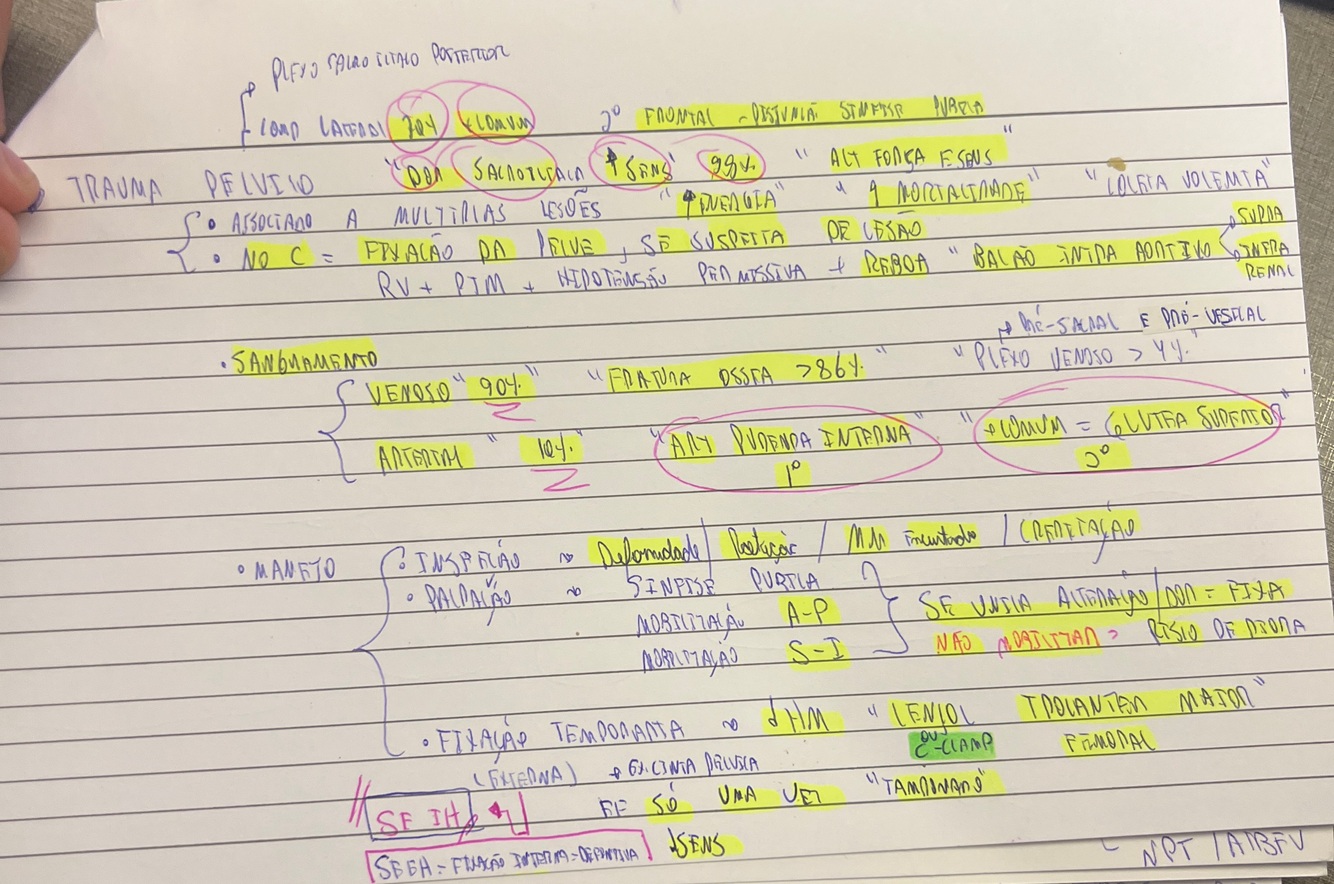 PLEXO SACRO ILIACO POSTERIOR
COMP LATERAL 70% +COMUM 2º FRONTAL - DISJUNÇÃO SINFISE PUBICA
TRAUMA PELVICO "DOR SACROILIACA ↑SENS" 99% "ALT FORÇA E SENS"
• ASSOCIADO A MULTIPLAS LESÕES "↑ENERGIA" "↑ MORTALIDADE" "COLETA VOLEMIA"
• NO C = FIXAÇÃO DA PELVE, SE SUSPEITA DE LESÃO
RV + PTM + HIPOTENSÃO PERMISSIVA + REBOA "BALÃO INTRA AORTICO SUPRA
INFRA
RENAL
→ PRÉ-SACRAL E PRÉ-VESICAL
• SANGRAMENTO
VENOSO "90%" "FRATURA OSSEA >86%" "PLEXO VENOSO > 4%"
ARTERIAL "10%" "ART PUDENDA INTERNA" "+COMUM = GLUTEA SUPERIOR"
1º 2º
• MANEJO
• INSPEÇÃO Deformidade / Rotação / MM Encurtado / CREPITAÇÃO
• PALPAÇÃO SINFISE PUBICA
MOBILIZAÇÃO A-P
MOBILIZAÇÃO S-I
SE UNICA ALTERAÇÃO/DOR = FIXA
NÃO MOBILIZAR = RISCO DE PIORA
• FIXAÇÃO TEMPORARIA ↓HM "LENÇOL TROCANTER MAIOR"
OU C-CLAMP FEMORAL
(EXTERNA) → EX. CINTA PELVICA
SE IH EF SÓ UMA VEZ "TAMPONADO"
SE EH = FIXAÇÃO INTERNA = DEFINITIVA ↓SENS
NPT /